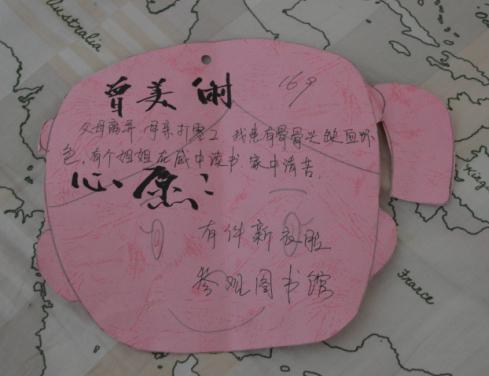 Australia
曾美
169
父母离异 母亲打零工 我患有股骨头缺血坏
死,有个姐姐在咸中读书 家中清苦.
心愿:
有件新衣服
参观图书馆
France